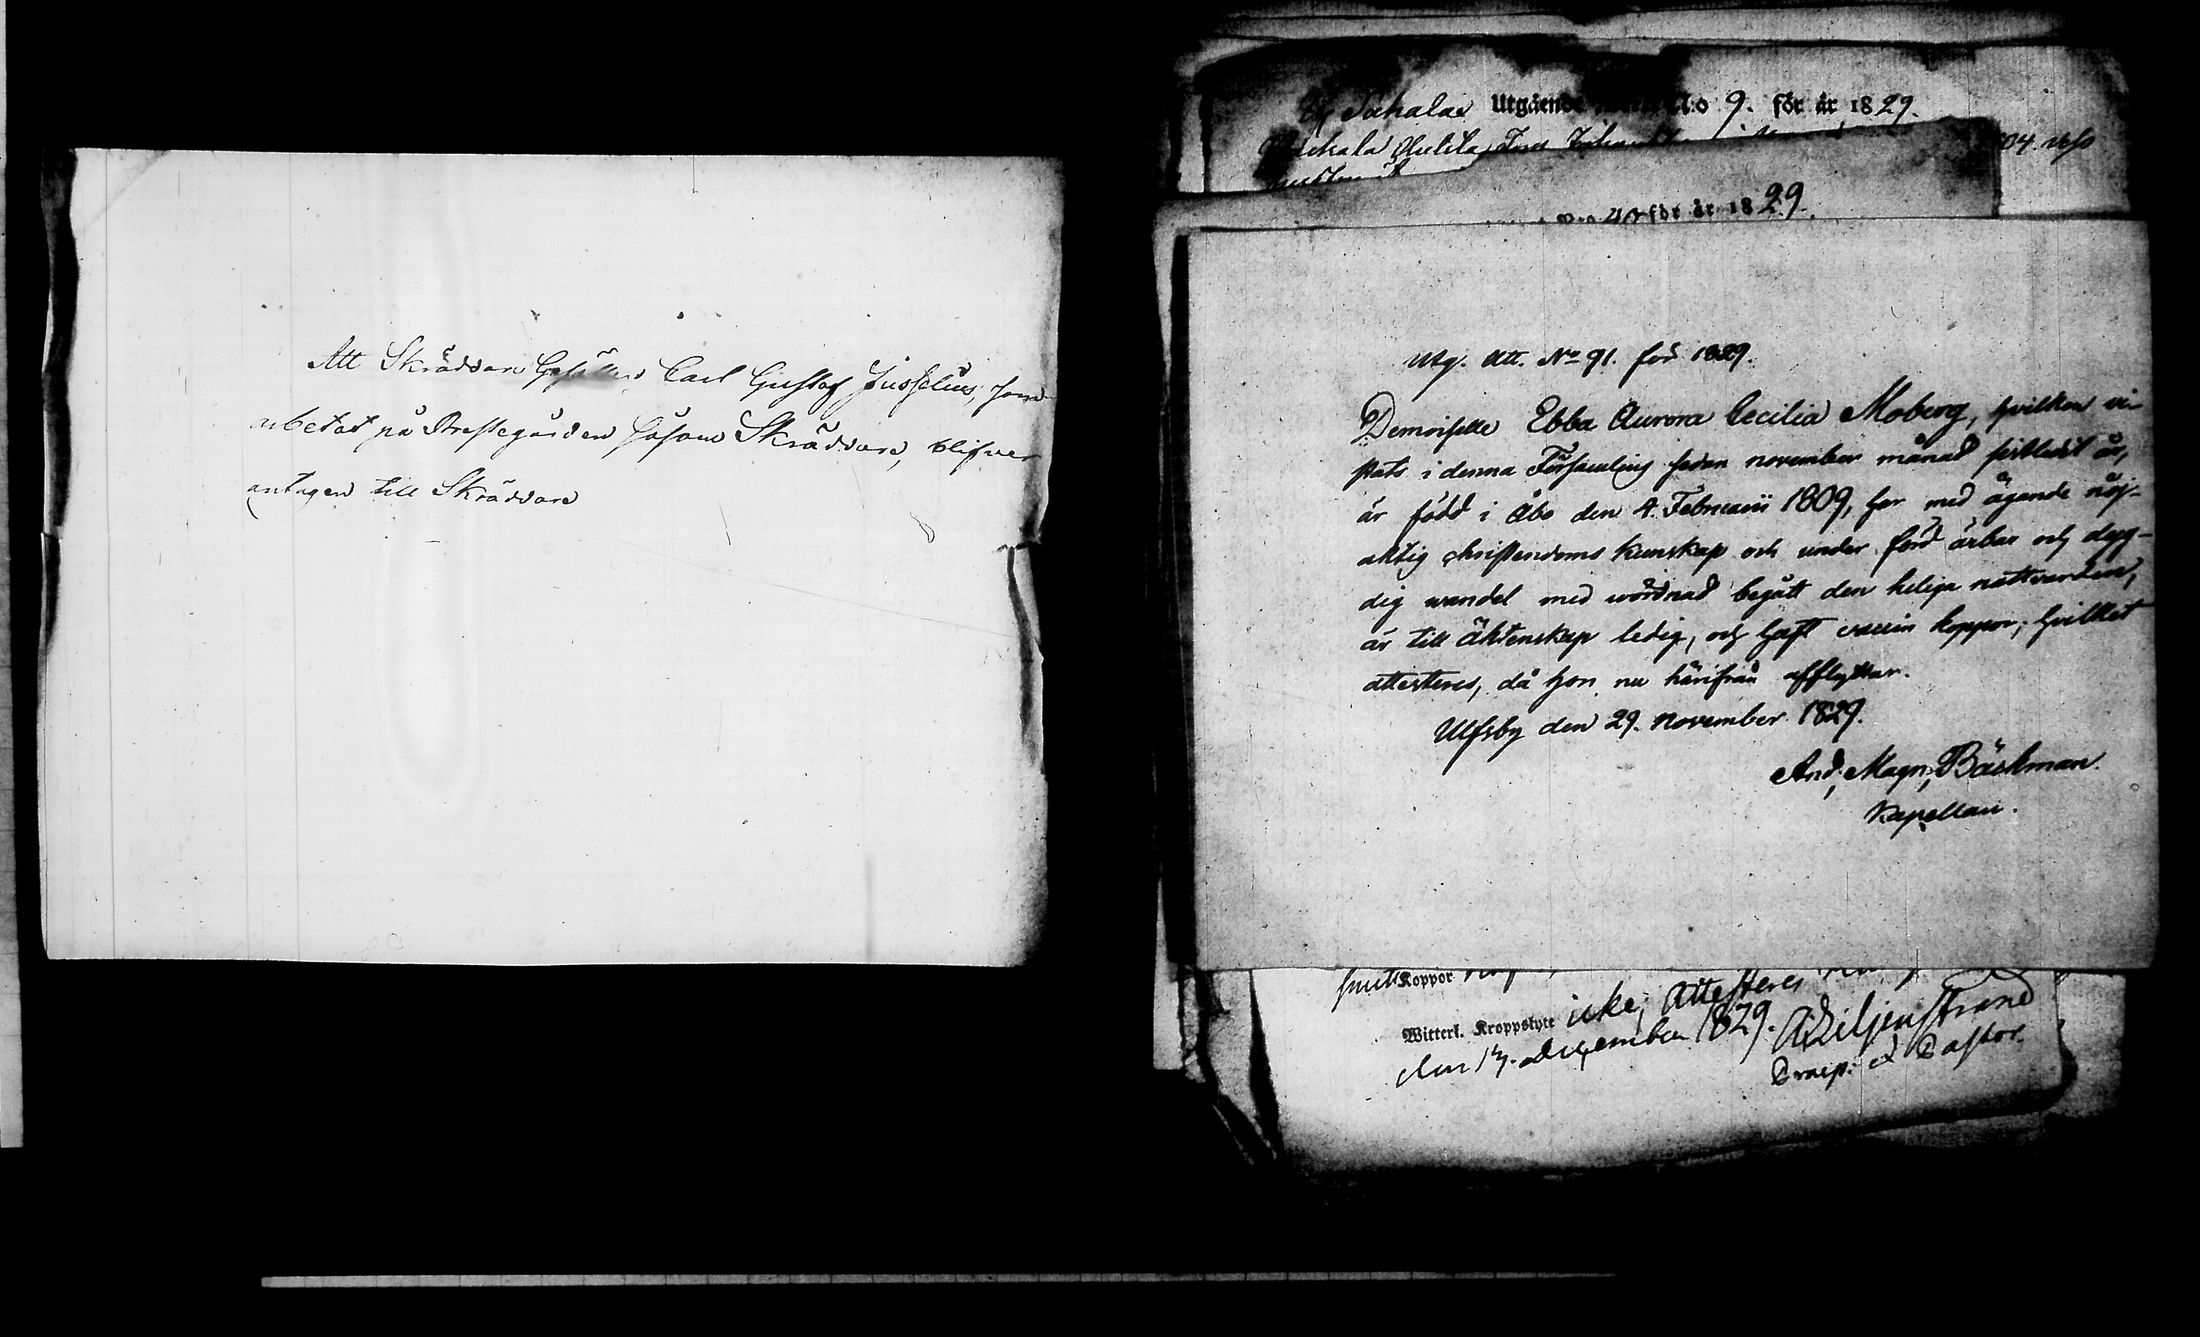 Att Skräddare Gesällen Carl Gustaf Jusselius, som
arbetat på Prestegården såsom Skräddare, blifver
antagen till Skräddare
Utgående No 9. för år 1829.
för år 1829.
Utg. Att. No 91. för 1829.
Demoiselle Ebba Aurora Cecilia Moberg, hvilken vi-
stats i denna Församling sedan november månad sistledit år,
är född i Åbo den 4. Februarii 1809, har med ägande nöj-
aktig christendoms kunskap och under förd ärbar och dyg-
dig wandel med wördnad begått den heliga nattvarden,
är till äktenskap ledig, och haft vaccin koppor; hvilket
attesteres, då hon nu härifrån afflyttar.
Ulfsby den 29. November 1829.
And. Magn. Bäckman.
Kapellan.
Koppor
Witterl. Kroppslyte icke; Attesteres
den 17. December 1829. A Liljenstrand
Praep. et Pastor.